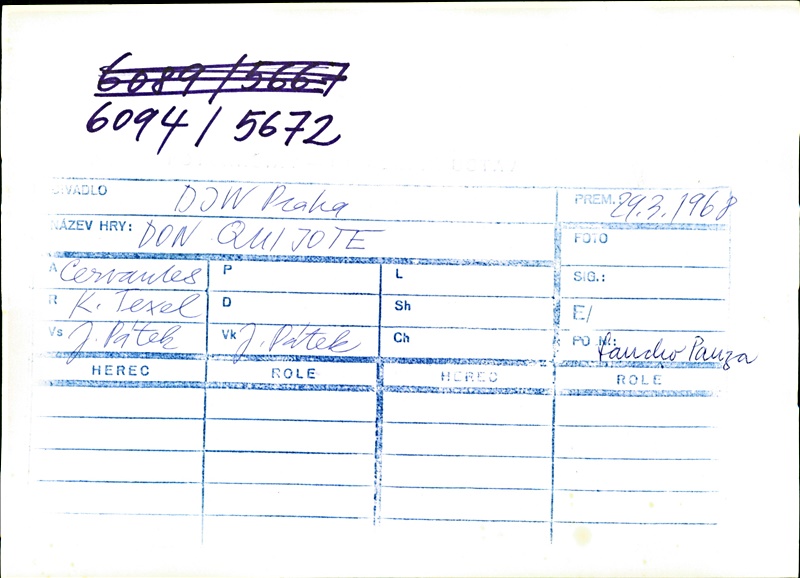 6089 / 5667
6094 / 5672
DIVADLO DJW Praha PREM. 29.3.1968
NÁZEV HRY: DON QUIJOTE FOTO
A Cervantes P L SIG.:
R K. Texel D Sh E/
Vs J. Pátek Vk J. Pátek Ch PO N: Sancho Panza
HEREC ROLE HEREC ROLE